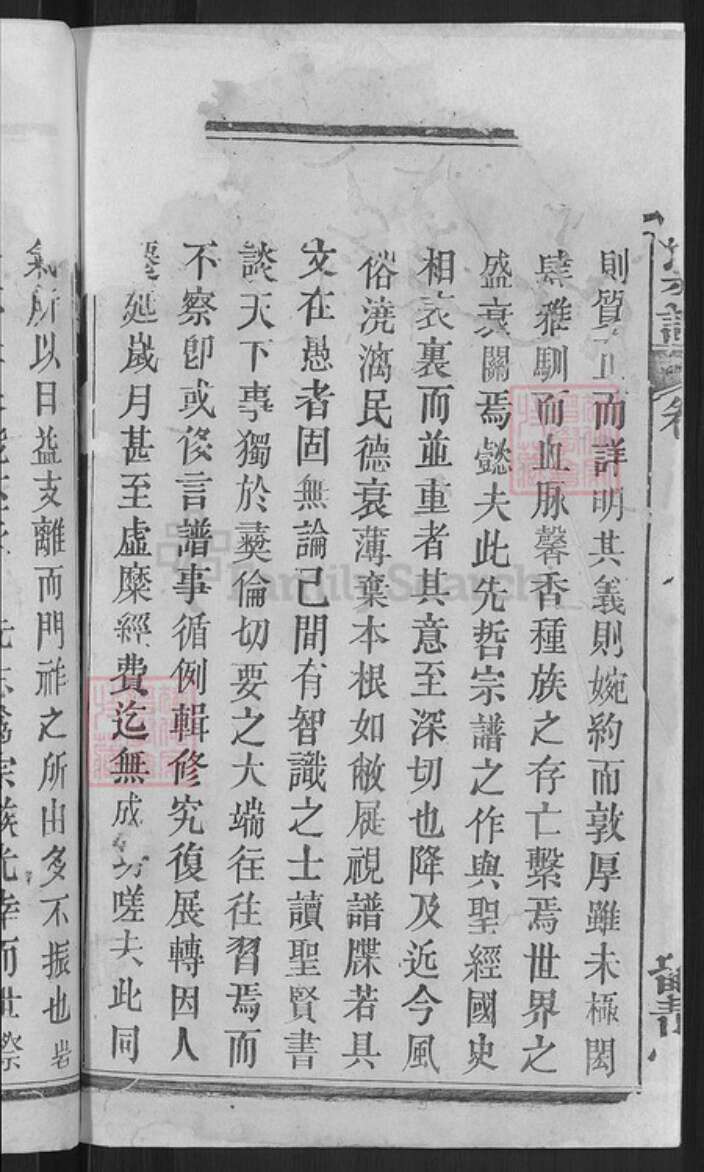 則質而詳明其義則婉約而敦厚雖未極閎
肆雅馴而血脉馨香種族之存亡繫焉世界之
盛衰關焉懿夫此先哲宗譜之作與聖經國史
相表裏而並重者其意至深切也降及近今風
俗澆漓民德衰薄棄本根如敝屣視譜牒若具
文在愚者固無論已間有智識之士讀聖賢書
談天下事獨於彝倫切要之大端往往習焉而
不察卽或倐言譜事循例輯修究復展轉因人
延歲月甚至虛糜經費迄無成嗟夫此同
氣所以日益支離而門祚之所由多不振也岩
FamilySearch